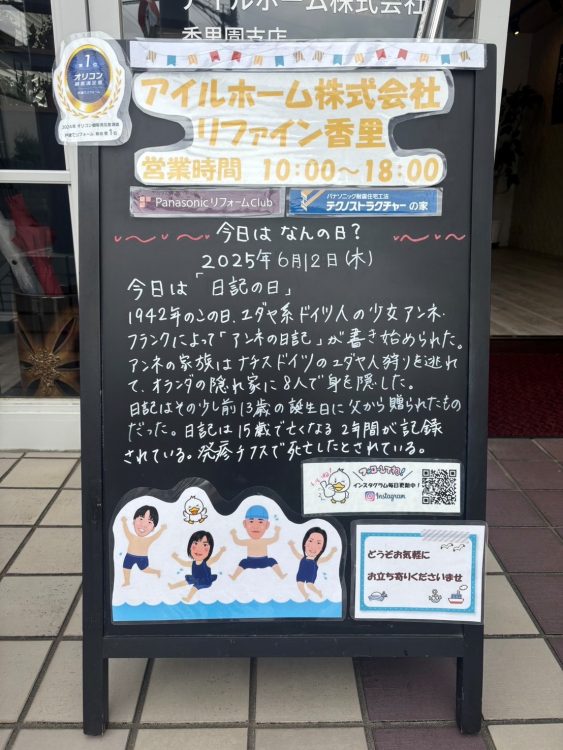 アイルホーム株式会社
香里園支店
第1位
オリコン
顧客満足度
2024年 オリコン顧客満足度調査
戸建てリフォーム 総合第1位
アイルホーム株式会社
リファイン香里
営業時間 10:00〜18:00
PanasonicリフォームClub
パナソニック耐震住宅工法
テクノストラクチャーの家
今日は なんの日?
2025年6月12日(木)
今日は「日記の日」
1942年のこの日、ユダヤ系ドイツ人の少女アンネ・
フランクによって「アンネの日記」が書き始められた。
アンネの家族はナチスドイツのユダヤ人狩りを逃れ
て、オランダの隠れ家に8人で身を隠した。
日記はその少し前13歳の誕生日に父から贈られたもの
だった。日記は15歳で亡くなる2年間が記録
されている。発疹チフスで死亡したとされている。
インスタグラム毎日更新中!
Instagram
どうぞお気軽に
お立ち寄りくださいませ